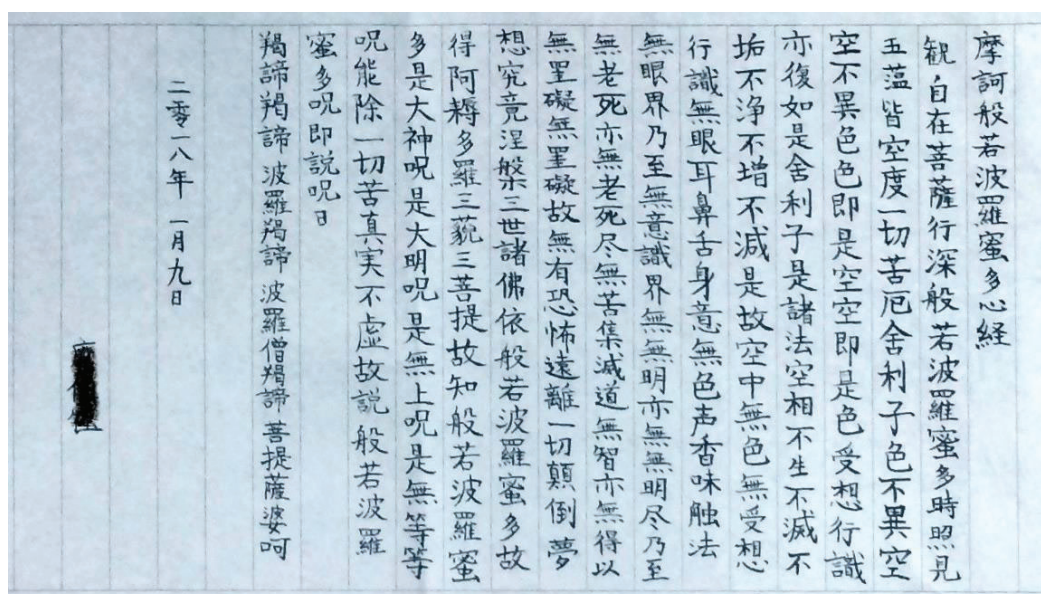 摩訶般若波羅蜜多心経
観自在菩薩行深般若波羅蜜多時照見
五薀皆空度一切苦厄舍利子色不異空
空不異色色即是空空即是色受想行識
亦復如是舍利子是諸法空相不生不滅不
垢不浄不増不減是故空中無色無受想
行識無眼耳鼻舌身意無色声香味触法
無眼界乃至無意識界無無明亦無無明尽乃至
無老死亦無老死尽無苦集滅道無智亦無得以
無罣礙無罣礙故無有恐怖遠離一切顛倒夢
想究竟涅槃三世諸佛依般若波羅蜜多故
得阿耨多羅三藐三菩提故知般若波羅蜜
多是大神呪是大明呪是無上呪是無等等
呪能除一切苦真実不虚故説般若波羅
蜜多呪即説呪曰
羯諦羯諦 波羅羯諦 波羅僧羯諦 菩提薩婆呵
二零一八年 一月九日